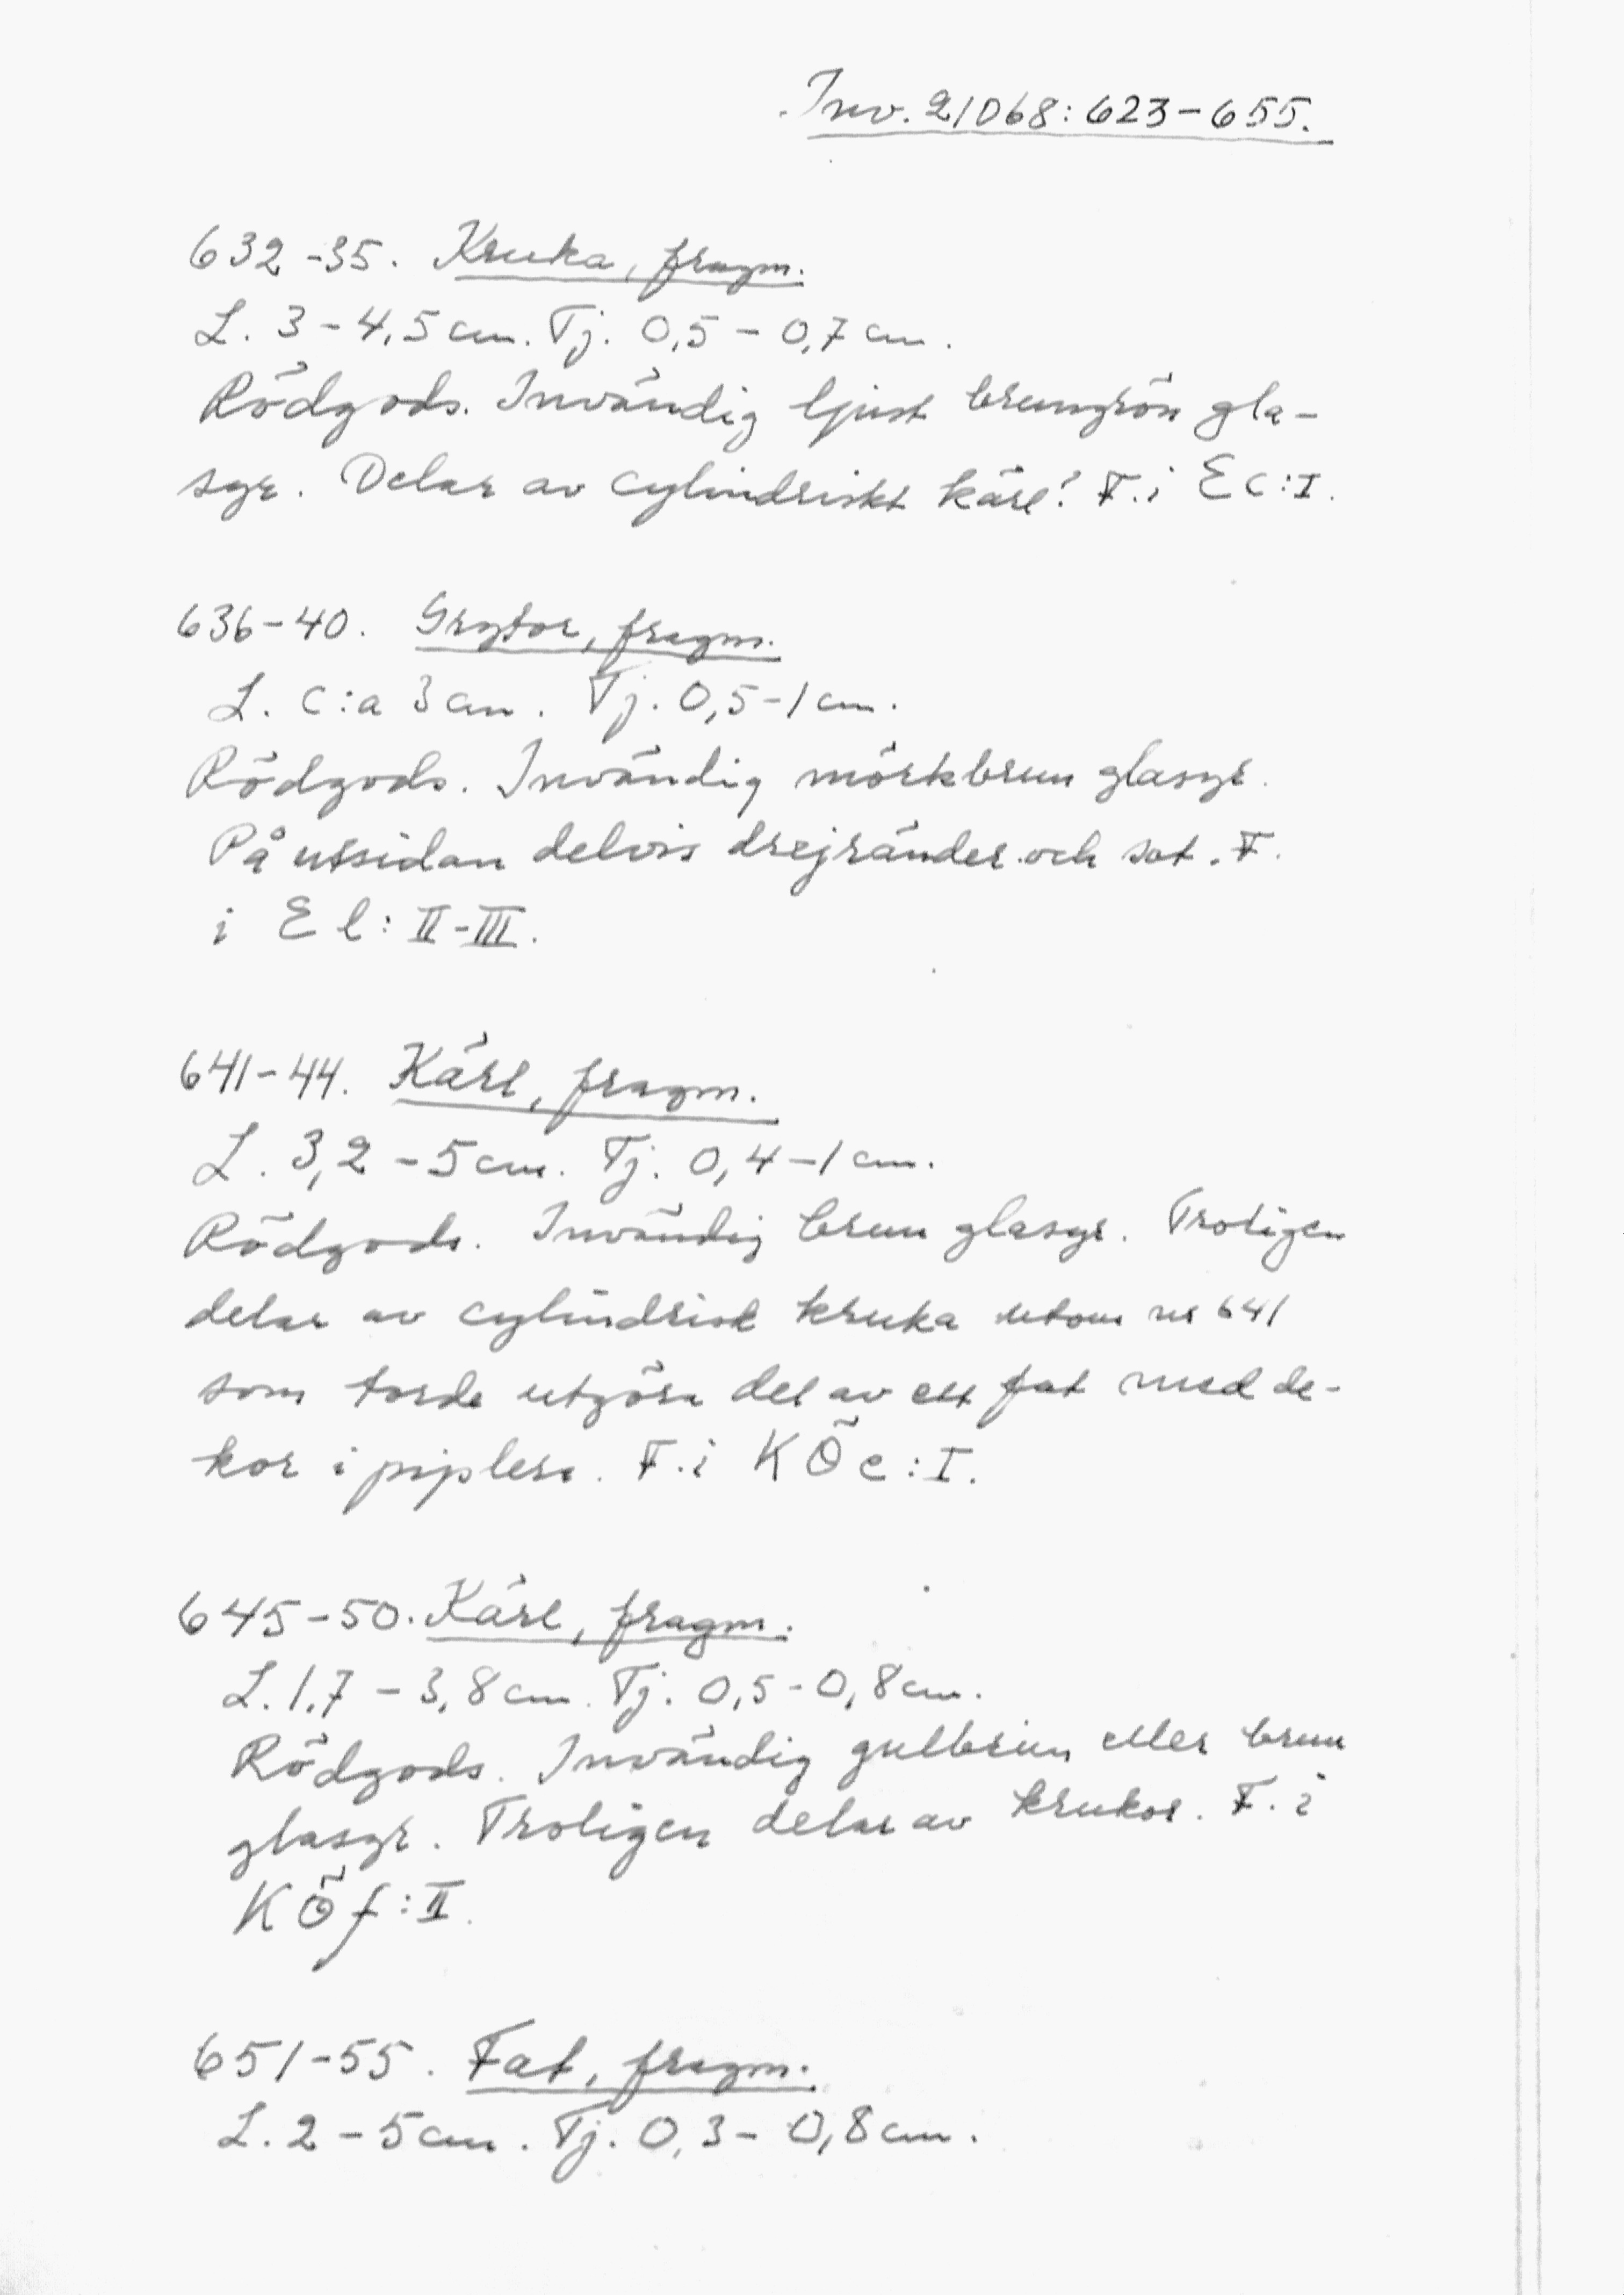 Inv. 21068:623-655.
632-35. Kruka, fragm.
L. 3-4,5 cm. Tj. 0,5-0,7 cm.
Rödgods. Invändig ljust brungrön gla-
syr. Delar av cylindriskt kärl? F. i E c:I.
636-40. Grytor, fragm.
L. c:a 3 cm. Tj. 0,5-1 cm.
Rödgods. Invändig mörkbrun glasyr.
På utsidan delvis drejränder och sot. F.
i E l: II-III.
641-44. Kärl, fragm.
L. 3,2-5 cm. Tj. 0,4-1 cm.
Rödgods. Invändig brun glasyr. Troligen
delar av cylindrisk kruka utom nr 641
som torde utgöra del av ett fat med de-
kor i piplera. F. i KÖ e:I.
645-50. Kärl, fragm.
L. 1,7-3,8 cm. Tj. 0,5-0,8 cm.
Rödgods. Invändig gulbrun eller brun
glasyr. Troligen delar av krukor. F. i
KÖ f:II.
651-55. Fat, fragm.
L. 2-5 cm. Tj. 0,3-0,8 cm.